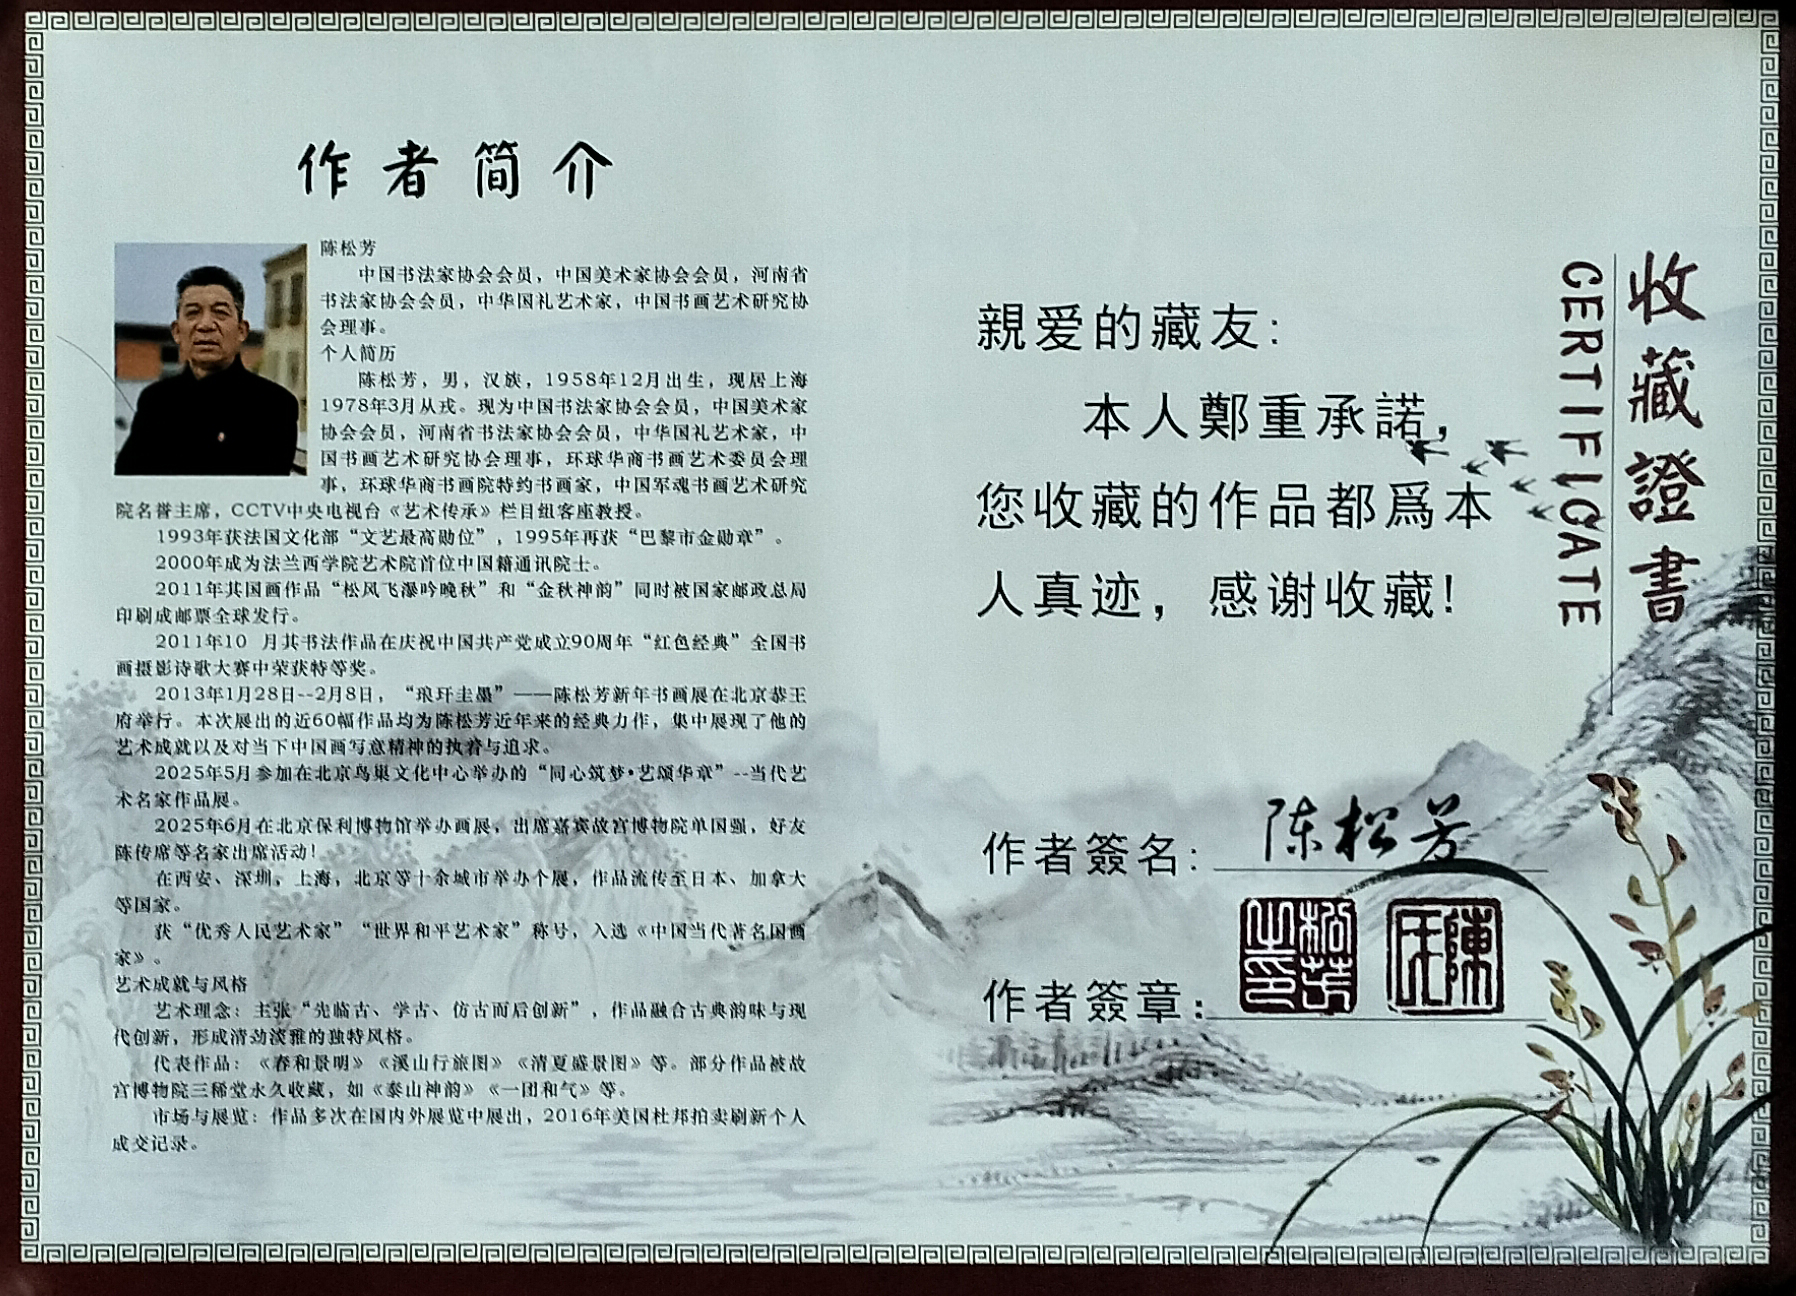 作者简介
陈松芳
中国书法家协会会员，中国美术家协会会员，河南省
书法家协会会员，中华国礼艺术家，中国书画艺术研究协
会理事。
个人简历
陈松芳，男，汉族，1958年12月出生，现居上海
1978年3月从戎。现为中国书法家协会会员，中国美术家
协会会员，河南省书法家协会会员，中华国礼艺术家，中
国书画艺术研究协会理事，环球华商书画艺术委员会理
事，环球华商书画院特约书画家，中国军魂书画艺术研究
院名誉主席，CCTV中央电视台《艺术传承》栏目组客座教授。
1993年获法国文化部“文艺最高勋位”，1995年再获“巴黎市金勋章”。
2000年成为法兰西学院艺术院首位中国籍通讯院士。
2011年其国画作品“松风飞瀑吟晚秋”和“金秋神韵”同时被国家邮政总局
印刷成邮票全球发行。
2011年10 月其书法作品在庆祝中国共产党成立90周年“红色经典”全国书
画摄影诗歌大赛中荣获特等奖。
2013年1月28日--2月8日，“琅玕圭墨”——陈松芳新年书画展在北京恭王
府举行。本次展出的近60幅作品均为陈松芳近年来的经典力作，集中展现了他的
艺术成就以及对当下中国画写意精神的执着与追求。
2025年5月参加在北京鸟巢文化中心举办的“同心筑梦•艺颂华章”--当代艺
术名家作品展。
2025年6月在北京保利博物馆举办画展，出席嘉宾故宫博物院单国强，好友
陈传席等名家出席活动！
在西安、深圳，上海，北京等十余城市举办个展，作品流传至日本、加拿大
等国家。
获“优秀人民艺术家”“世界和平艺术家”称号，入选《中国当代著名国画
家》。
艺术成就与风格
艺术理念：主张“先临古、学古、仿古而后创新”，作品融合古典韵味与现
代创新，形成清劲淡雅的独特风格。
代表作品：《春和景明》《溪山行旅图》《清夏盛景图》等。部分作品被故
宫博物院三稀堂永久收藏，如《泰山神韵》《一团和气》等。
市场与展览：作品多次在国内外展览中展出，2016年美国杜邦拍卖刷新个人
成交记录。
收藏證書
CERTIFICATE
親爱的藏友:
本人鄭重承諾，
您收藏的作品都爲本
人真迹，感谢收藏!
作者簽名: 陈松芳
作者簽章: 松芳之印 陳氏